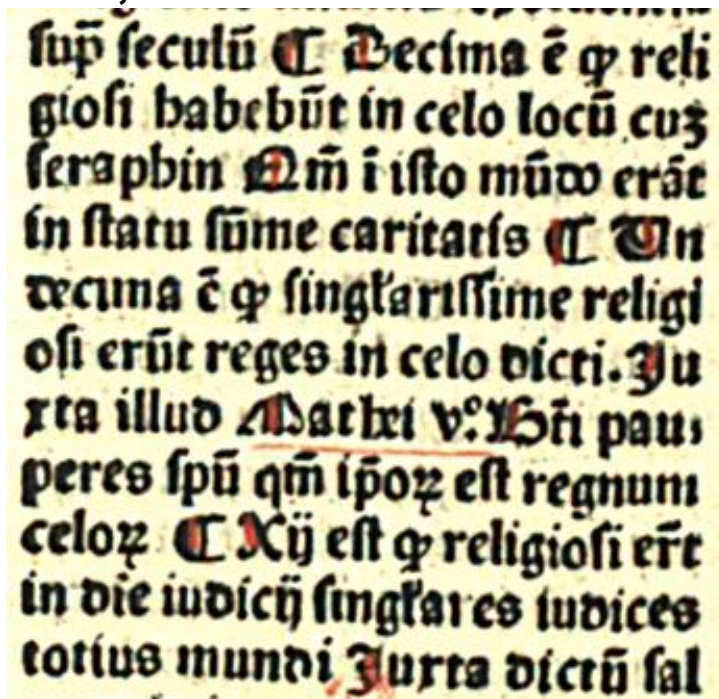 ſup̄ ſeculū ¶ Decima ē ꝙ reli
gioſi habebūt in celo locū cuꝫ
ſeraphin Qm̄ ī iſto mūdo erāt
in ſtatu ſūme caritatis ¶ Un
decima ē ꝙ ſingl̓ariſſime religi
oſi erūt reges in celo dicti. Ju
xta illud Mathei vͦ. Bt̄i pau⸗
peres ſpū qm̄ ip̄oꝝ eſt regnum
celoꝝ ¶ Xij eſt ꝙ religioſi er̄t
in die iudicij ſingl̓ares iudices
totius mundi Juxta dictū ſal